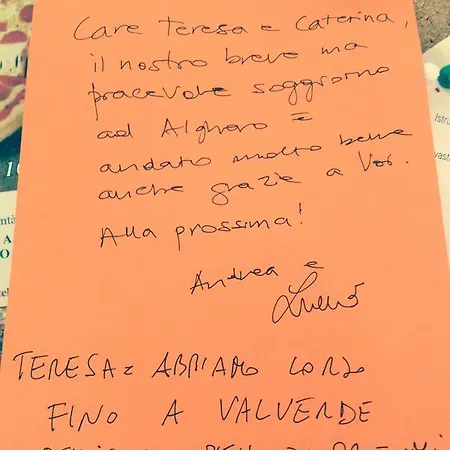 Care Teresa e Caterina,
il nostro breve ma
piacevole soggiorno
ad Alghero è
andato molto bene
anche grazie a Voi.
Alla prossima!
Andrea e
TERESA: ABBIAMO CORSO
FINO A VALVERDE